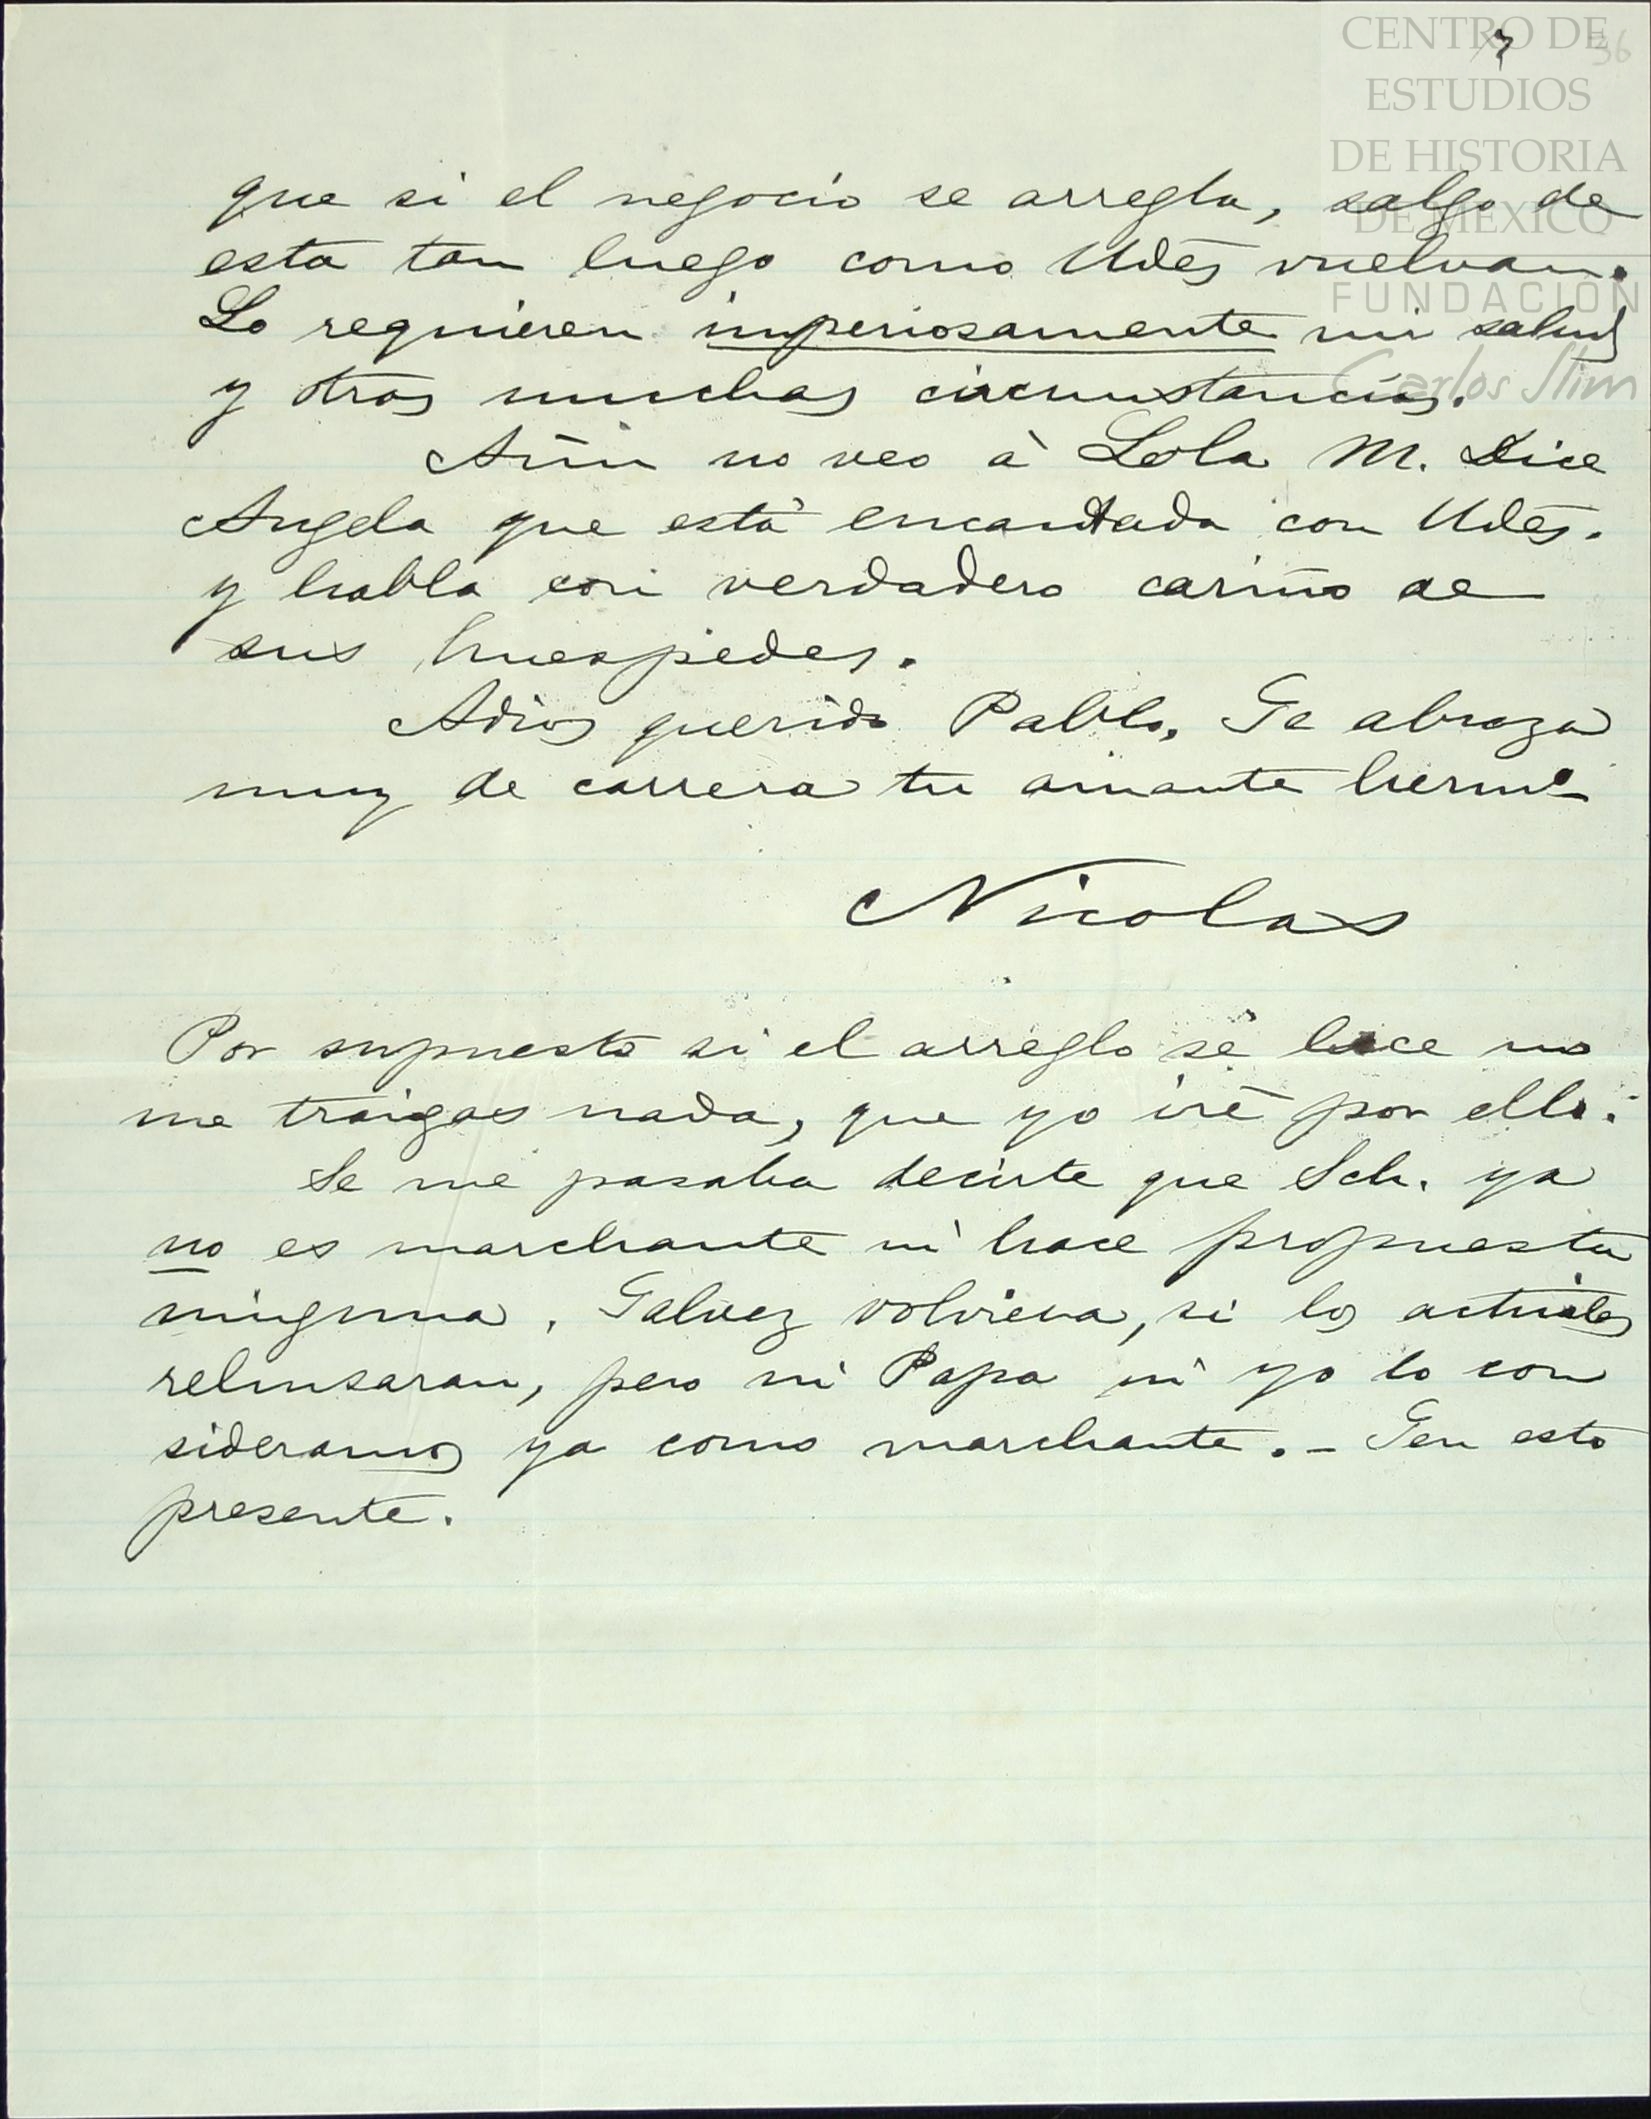 CENTRO DE
ESTUDIOS
DE HISTORIA
DE MEXICO
FUNDACION
Carlos Slim
7 36
que si el negocio se arregla, salgo de
esta tan luego como Udes vuelvan.
Lo requieren imperiosamente mi salud
y otras muchas circunstancias.
Aún no veo à Lola M. Dice
Angela que està encantada con Udes.
y habla con verdadero cariño de
sus huespedes.
Adios querido Pablo. Te abraza
muy de carrera tu amante hermo
Nicolas
Por supuesto si el arreglo se hace no
me traigas nada, que yo iré por ello.
Se me pasaba decirte que Sch. ya
no es marchante ni hace propuesta
ninguna. Galvez volviera, si los actuales
rehusaran, pero ni Papa ni yo lo con
sideramos ya como marchante. - Ten esto
presente.